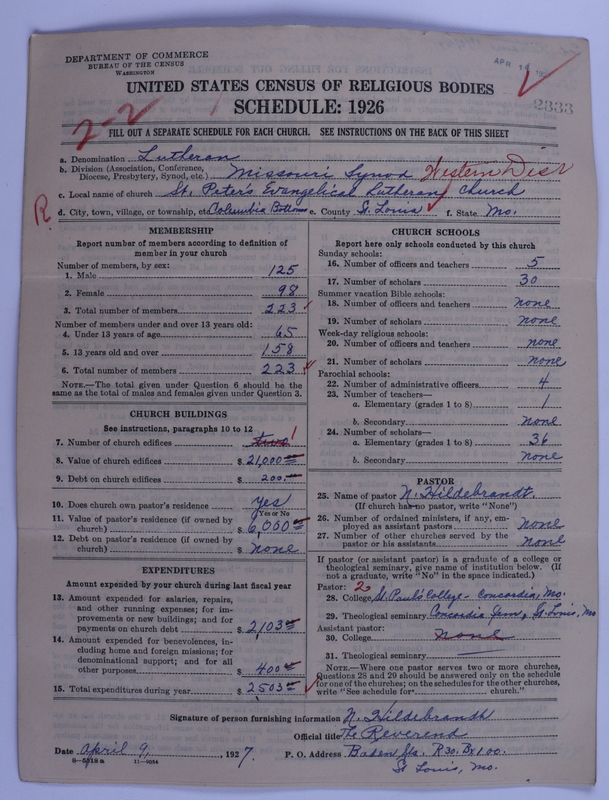 DEPARTMENT OF COMMERCE
BUREAU OF THE CENSUS
WASHINGTON
APR
2333
UNITED STATES CENSUS OF RELIGIOUS BODIES
SCHEDULE: 1926
2-2
FILL OUT A SEPARATE SCHEDULE FOR EACH CHURCH. SEE INSTRUCTIONS ON THE BACK OF THIS SHEET
a. Denomination Lutheran
b. Division (Association, Conference, Diocese, Presbytery, Synod, etc.) Missouri Synod Western Dist
c. Local name of church St. Peter's Evangelical Lutheran Church
R
d. City, town, village, or township, etc. Columbia Bottoms e. County St. Louis f. State Mo.
MEMBERSHIP
Report number of members according to definition of
member in your church
Number of members, by sex:
1. Male 125
2. Female 98
3. Total number of members 223
Number of members under and over 13 years old:
4. Under 13 years of age 65
5. 13 years old and over 158
6. Total number of members 223
NOTE.—The total given under Question 6 should be
same as the total of males and females given under Question 3.
CHURCH BUILDINGS
See instructions, paragraphs 10 to 12
7. Number of church edifices two 1
8. Value of church edifices $ 21,000
9. Debt on church edifices $ 200.
10. Does church own pastor's residence yes
Yes or No
11. Value of pastor's residence (if owned by
church) $ 6,000
12. Debt on pastor's residence (if owned by
church) $ none
EXPENDITURES
Amount expended by your church during last fiscal year
13. Amount expended for salaries, repairs,
and other running expenses; for im-
provements or new buildings; and for
payments on church debt $ 2103
14. Amount expended for benevolences, in-
cluding home and foreign missions; for
denominational support; and for all
other purposes $ 400
15. Total expenditures during year $ 2503
CHURCH SCHOOLS
Report here only schools conducted by this church
Sunday schools:
16. Number of officers and teachers 5
17. Number of scholars 30
Summer vacation Bible schools:
18. Number of officers and teachers none
19. Number of scholars none
Week-day religious schools:
20. Number of officers and teachers none
21. Number of scholars none
Parochial schools:
22. Number of administrative officers 4
23. Number of teachers—
a. Elementary (grades 1 to 8) 1
b. Secondary none
24. Number of scholars—
a. Elementary (grades 1 to 8) 36
b. Secondary none
PASTOR
25. Name of pastor N. Hildebrandt.
(If church has no pastor, write "None")
26. Number of ordained ministers, if any, em-
ployed as assistant pastors none
27. Number of other churches served by the
pastor or his assistants none
If pastor (or assistant pastor) is a graduate of a college or
theological seminary, give name of institution below. (If
not a graduate, write "No" in the space indicated.)
Pastor: 2
28. College St. Paul's College - Concordia, Mo.
29. Theological seminary Concordia Sem, St. Louis, Mo
Assistant pastor:
30. College none
31. Theological seminary
NOTE.—Where one pastor serves two or more churches,
Questions 28 and 29 should be answered only on the schedule
for one of the churches; on the schedules for the other churches,
write "See schedule for church."
Signature of person furnishing information N. Hildebrandt
Official title The Reverend
Date April 9, 1927. P. O. Address Baden Sta. R30. Bx 100.
8—5518 a 11—9034
St Louis, Mo.